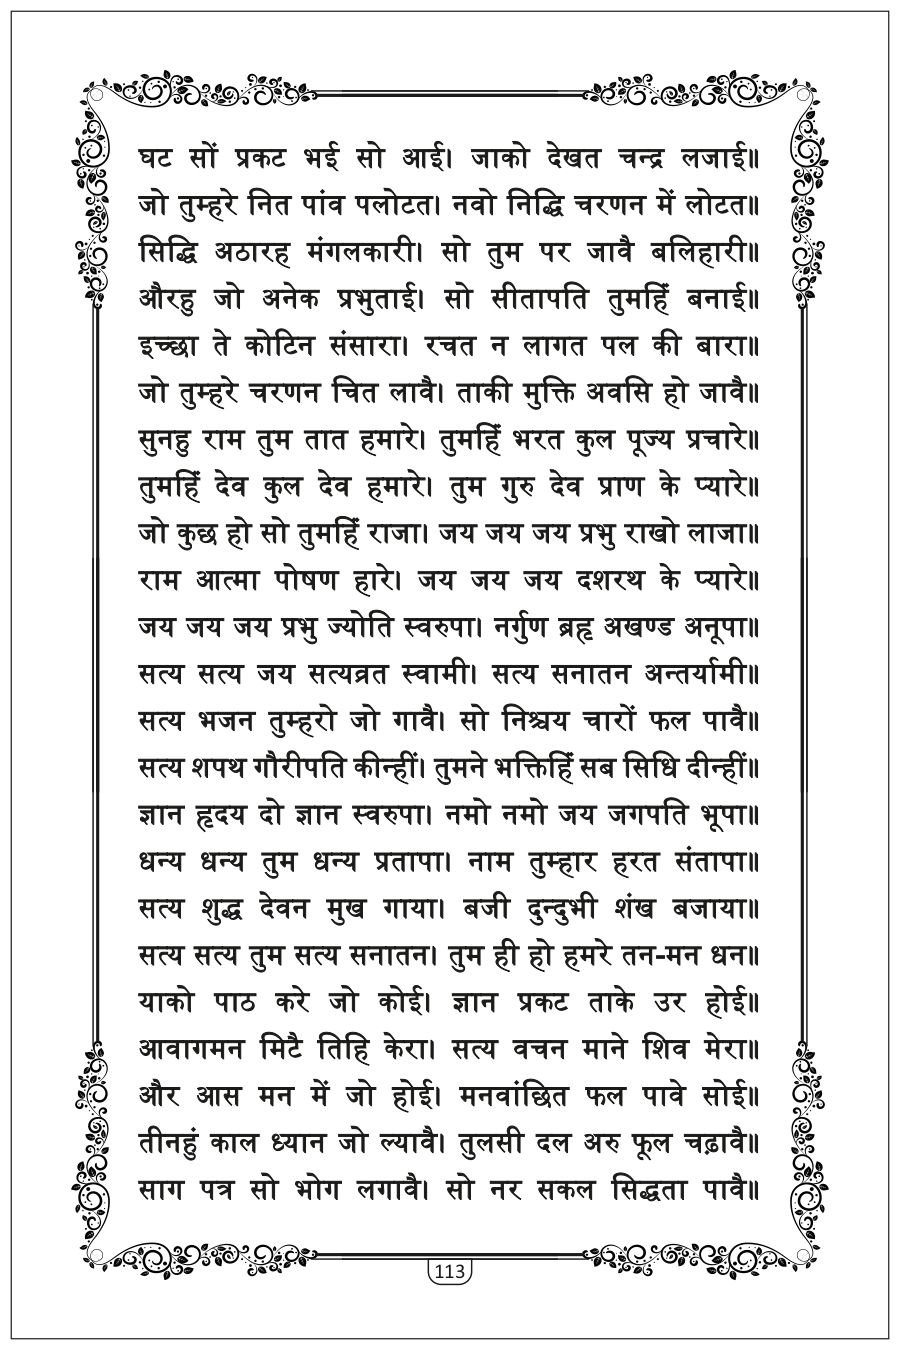 घट सों प्रकट भई सो आई। जाको देखत चन्द्र लजाई॥
जो तुम्हरे नित पांव पलोटत। नवो निद्धि चरणन में लोटत॥
सिद्धि अठारह मंगलकारी। सो तुम पर जावै बलिहारी॥
औरहु जो अनेक प्रभुताई। सो सीतापति तुमहिं बनाई॥
इच्छा ते कोटिन संसारा। रचत न लागत पल की बारा॥
जो तुम्हरे चरणन चित लावै। ताकी मुक्ति अवसि हो जावै॥
सुनहु राम तुम तात हमारे। तुमहिं भरत कुल पूज्य प्रचारे॥
तुमहिं देव कुल देव हमारे। तुम गुरु देव प्राण के प्यारे॥
जो कुछ हो सो तुमहिं राजा। जय जय जय प्रभु राखो लाजा॥
राम आत्मा पोषण हारे। जय जय जय दशरथ के प्यारे॥
जय जय जय प्रभु ज्योति स्वरुपा। नर्गुण ब्रह्म अखण्ड अनूपा॥
सत्य सत्य जय सत्यव्रत स्वामी। सत्य सनातन अन्तर्यामी॥
सत्य भजन तुम्हरो जो गावै। सो निश्चय चारों फल पावै॥
सत्य शपथ गौरीपति कीन्हीं। तुमने भक्तिहिं सब सिधि दीन्हीं॥
ज्ञान हृदय दो ज्ञान स्वरुपा। नमो नमो जय जगपति भूपा॥
धन्य धन्य तुम धन्य प्रतापा। नाम तुम्हार हरत संतापा॥
सत्य शुद्ध देवन मुख गाया। बजी दुन्दुभी शंख बजाया॥
सत्य सत्य तुम सत्य सनातन। तुम ही हो हमरे तन-मन धन॥
याको पाठ करे जो कोई। ज्ञान प्रकट ताके उर होई॥
आवागमन मिटै तिहि केरा। सत्य वचन माने शिव मेरा॥
और आस मन में जो होई। मनवांछित फल पावे सोई॥
तीनहुं काल ध्यान जो ल्यावै। तुलसी दल अरु फूल चढ़ावै॥
साग पत्र सो भोग लगावै। सो नर सकल सिद्धता पावै॥
113